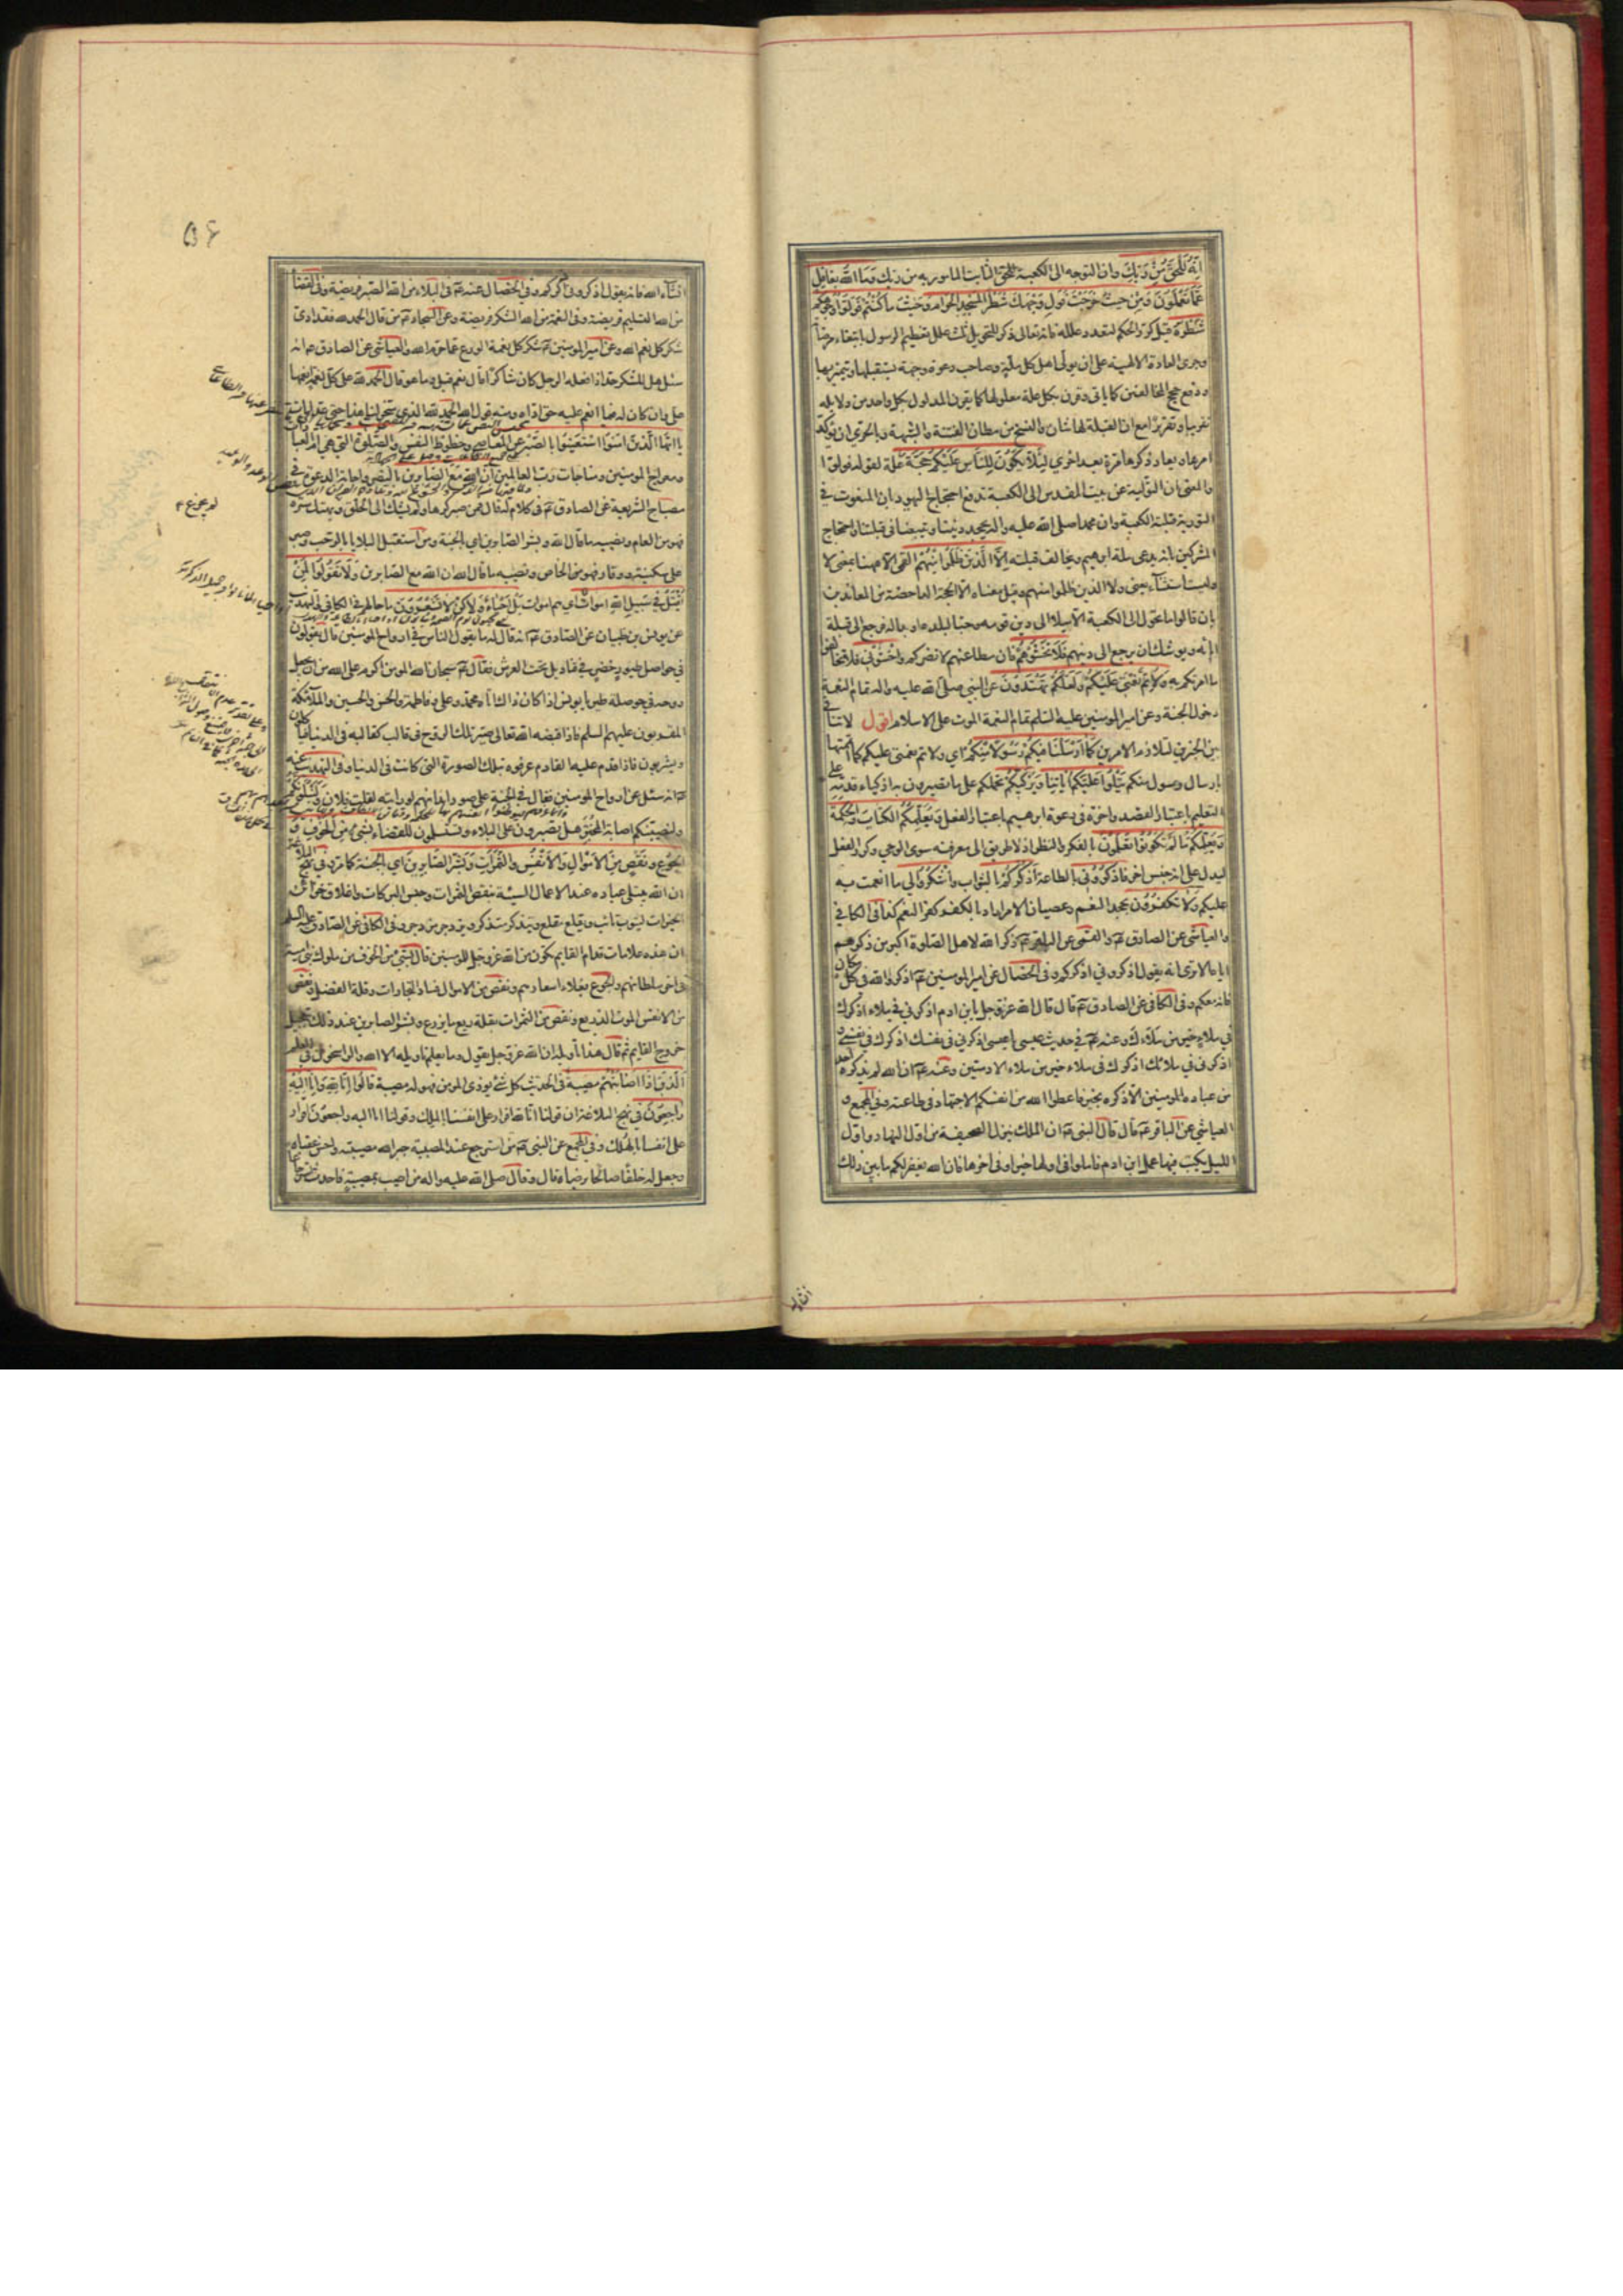 اِنَّهُ لَلْحَقُّ مِنْ رَبِّكَ وان التوجه الى الكعبة للحق الثابت المامور به من ربك وَمَا اللَّهُ بِغَافِلٍ
عَمَّا تَعْمَلُونَ وَمِنْ حَيْثُ خَرَجْتَ فَوَلِّ وَجْهَكَ شَطْرَ الْمَسْجِدِ الْحَرَامِ وَحَيْثُ مَا كُنْتُمْ فَوَلُّوا وُجُوهَكُمْ
شَطْرَهُ قيل كرر الحكم لتعدد علله فانه تعالى ذكر للتحويل ثلث علل تعظيم الرسول بابتغاء مرضاته
وجرى العادة الالهية على ان يولى اهل كل ملة وصاحب دعوة وجهة يستقبلها ويتميز بها
ودفع حجج المخالفين كما ياتى وقرن بكل علة معلولها كما يقرن المدلول بكل واحد من دلايله
تقريبا وتقريرا مع ان القبلة لها شان والنسخ من مظان الفتنة والشبهة وبالحرى ان يؤكد
امرها ويعاد ذكرها مرة بعد اخرى لِئَلَّا يَكُونَ لِلنَّاسِ عَلَيْكُمْ حُجَّةٌ علة لقوله فولوا
والمعنى ان التولية عن بيت المقدس الى الكعبة تدفع احتجاج اليهود بان المنعوت في
التورية قبلته الكعبة وان محمدا صلى الله عليه واله يجحد ديننا ويتبعنا في قبلتنا واحتجاج
المشركين بانه يدعى ملة ابرهيم ويخالف قبلته اِلَّا الَّذِينَ ظَلَمُوا مِنْهُمْ القمى الا ههنا بمعنى لا
وليست استثناء يعنى ولا الذين ظلموا منهم وقيل معناه الا الحجة الداحضة من المعاندين
بان قالوا ما تحول الى الكعبة الا ميلا الى دين قومه وحبا لبلده او بدا له فرجع الى قبلة
ابائه ويوشك ان يرجع الى دينهم فَلَا تَخْشَوْهُمْ فان مطاعنهم لا تضركم وَاخْشَوْنِي فلا تخالفوا
ما امرتكم به وَلِأُتِمَّ نِعْمَتِي عَلَيْكُمْ وَلَعَلَّكُمْ تَهْتَدُونَ عن النبي صلى الله عليه واله تمام النعمة
دخول الجنة وعن امير المومنين عليه السلم تمام النعمة الموت على الاسلام اقول لا تنافى
بين الخبرين لتلازم الامرين كَمَا اَرْسَلْنَا فِيكُمْ رَسُولًا مِنْكُمْ اي ولاتم نعمتى عليكم كما اتممتها
بارسال رسول منكم يَتْلُوا عَلَيْكُمْ اٰيَاتِنَا وَيُزَكِّيكُمْ يحملكم على ما تصيرون به ازكياء قدمه على
التعليم باعتبار القصد واخره في دعوة ابرهيم باعتبار الفعل وَيُعَلِّمُكُمُ الْكِتَابَ وَالْحِكْمَةَ
وَيُعَلِّمُكُمْ مَا لَمْ تَكُونُوا تَعْلَمُونَ بالفكر والنظر اذ لا طريق الى معرفته سوى الوحي وكرر الفعل
ليدل على انه جنس اخر فَاذْكُرُونِي بالطاعة اَذْكُرْكُمْ بالثواب وَاشْكُرُوا لِي ما انعمت به
عليكم وَلَا تَكْفُرُونِ بجحد النعم وعصيان الامر اراد بالكفر كفر النعم كما في الكافي
والعياشى عن الصادق ع والقمى عن الباقر ع ذكر الله لاهل الصلوة اكبر من ذكرهم
اياه الا ترى انه يقول اذكروني اذكركم وفي الخصال عن امير المومنين ع اذكروا الله في كل مكان
فانه معكم وفي الكافى عن الصادق ع قال قال الله عز وجل يا بن ادم اذكرني في ملاء اذكرك
في ملاء خير من ملائك وعنه ع في حديث عيسى يا عيسى اذكرني في نفسك اذكرك في نفسي
اذكرنى في ملائك اذكرك في ملاء خير من ملاء الادميين وعنه ع ان الله لم يذكره احد
من عباده المومنين الا ذكره بخير فاعطوا الله من انفسكم الاجتهاد في طاعته وفي المجمع و
العياشي عن الباقر ع قال قال النبي ص ان الملك ينزل الصحيفة من اول النهار واول
الليل يكتب فيها عمل ابن ادم فاملوا في اولها خيرا وفي اخرها فان الله يغفر لكم ما بين ذلك
انشاء
٥٤
انشاء الله فانه يقول اذكرونى اذكركم وفي الخصال عنه ع في البلاء من الله الصبر فريضة وفي القضاء
من الله التسليم فريضة وفي النعمة من الله الشكر فريضة وعن السجاد ع من قال الحمد لله فقد ادى
شكر كل نعم الله وعن امير المومنين ع شكر كل نعمة الورع عما حرم الله والعياشى عن الصادق ع انه
سئل هل للشكر حد اذا فعله الرجل كان شاكرا قال نعم قيل وما هو قال الحمد لله على كل نعمة انعمها
على وان كان له فيما انعم عليه حق اداه ومنه قول الله الحمد لله الذى سخر لنا هذا حتى عد ايات
يَا اَيُّهَا الَّذِينَ اٰمَنُوا اسْتَعِينُوا بِالصَّبْرِ عن المعاصى وحظوظ النفس وَالصَّلٰوةِ التي هي ام العبادات
ومعراج المومنين ومناجات رب العالمين اِنَّ اللَّهَ مَعَ الصَّابِرِينَ بالنصر واجابة الدعوة في
مصباح الشريعة عن الصادق ع في كلام له قال فمن صبر كرها ولم يشك الى الخلق ولم يهتك ستره
فهو من العام ونصيبه ما قال الله وبشر الصابرين اي بالجنة ومن استقبل البلايا بالرحب وصبر
على سكينة ووقار فهو من الخاص ونصيبه ما قال الله ان الله مع الصابرين وَلَا تَقُولُوا لِمَنْ
يُقْتَلُ فِي سَبِيلِ اللَّهِ اَمْوَاتٌ اي هم اموات بَلْ اَحْيَاءٌ وَلٰكِنْ لَا تَشْعُرُونَ ما حالهم في الكافي والتهذيب
عن يونس بن ظبيان عن الصادق ع انه قال له ما يقول الناس في ارواح المومنين قال يقولون
في حواصل طيور خضر في قناديل تحت العرش فقال ع سبحان الله المومن اكرم على الله من ان يجعل
روحه في حوصلة طير يا يونس اذا كان ذلك اتاه محمد وعلى وفاطمة والحسن والحسين والملائكة
المقربون عليهم السلم فاذا قبضه الله تعالى صير تلك الروح في قالب كقالبه في الدنيا فياكلون
ويشربون فاذا قدم عليهم القادم عرفوه بتلك الصورة التي كانت في الدنيا وفي التهذيب عنه
ع انه سئل عن ارواح المومنين فقال في الجنة على صور ابدانهم لو رايته لقلت فلان وَلَنَبْلُوَنَّكُمْ
ولنصيبنكم اصابة المختبر هل تصبرون على البلاء وتستسلمون للقضاء بِشَيْءٍ مِنَ الْخَوْفِ وَ
الْجُوعِ وَنَقْصٍ مِنَ الْاَمْوَالِ وَالْاَنْفُسِ وَالثَّمَرَاتِ وَبَشِّرِ الصَّابِرِينَ اي بالجنة كما مر وفي نهج البلاغة
ان الله يبتلى عباده عند الاعمال السيئة بنقص الثمرات وحبس البركات واغلاق خزائن
الخيرات ليتوب تائب ويقلع مقلع ويتذكر متذكر ويزدجر مزدجر وفي الكافى عن الصادق عليه السلم
ان هذه علامات قدام القايم تكون من الله عز وجل للمومنين قال بشيء من الخوف من ملوك بنى امية
في اخر سلطانهم والجوع بغلاء اسعارهم ونقص من الاموال فساد التجارات وقلة الفضل ونقص
من الانفس الموت الذريع ونقص من الثمرات بقلة ريع ما يزرع وبشر الصابرين عند ذلك بتعجيل
خروج القايم ثم قال هذا تأويله ان الله عز وجل يقول وما يعلم تاويله الا الله والراسخون في العلم
اَلَّذِينَ اِذَا اَصَابَتْهُمْ مُصِيبَةٌ في الحديث كل شيء يوذى المومن فهو له مصيبة قَالُوا اِنَّا لِلَّهِ وَاِنَّا اِلَيْهِ
رَاجِعُونَ في نهج البلاغة ان قولنا انا لله اقرار على انفسنا بالملك وقولنا انا اليه راجعون اقرار
على انفسنا بالهلك وفي المجمع عن النبى ص من استرجع عند المصيبة جبر الله مصيبته واحسن عقباه
وجعل له خلفا صالحا يرضاه قال وقال صلى الله عليه واله من اصيب بمصيبة فاحدث استرجاعا